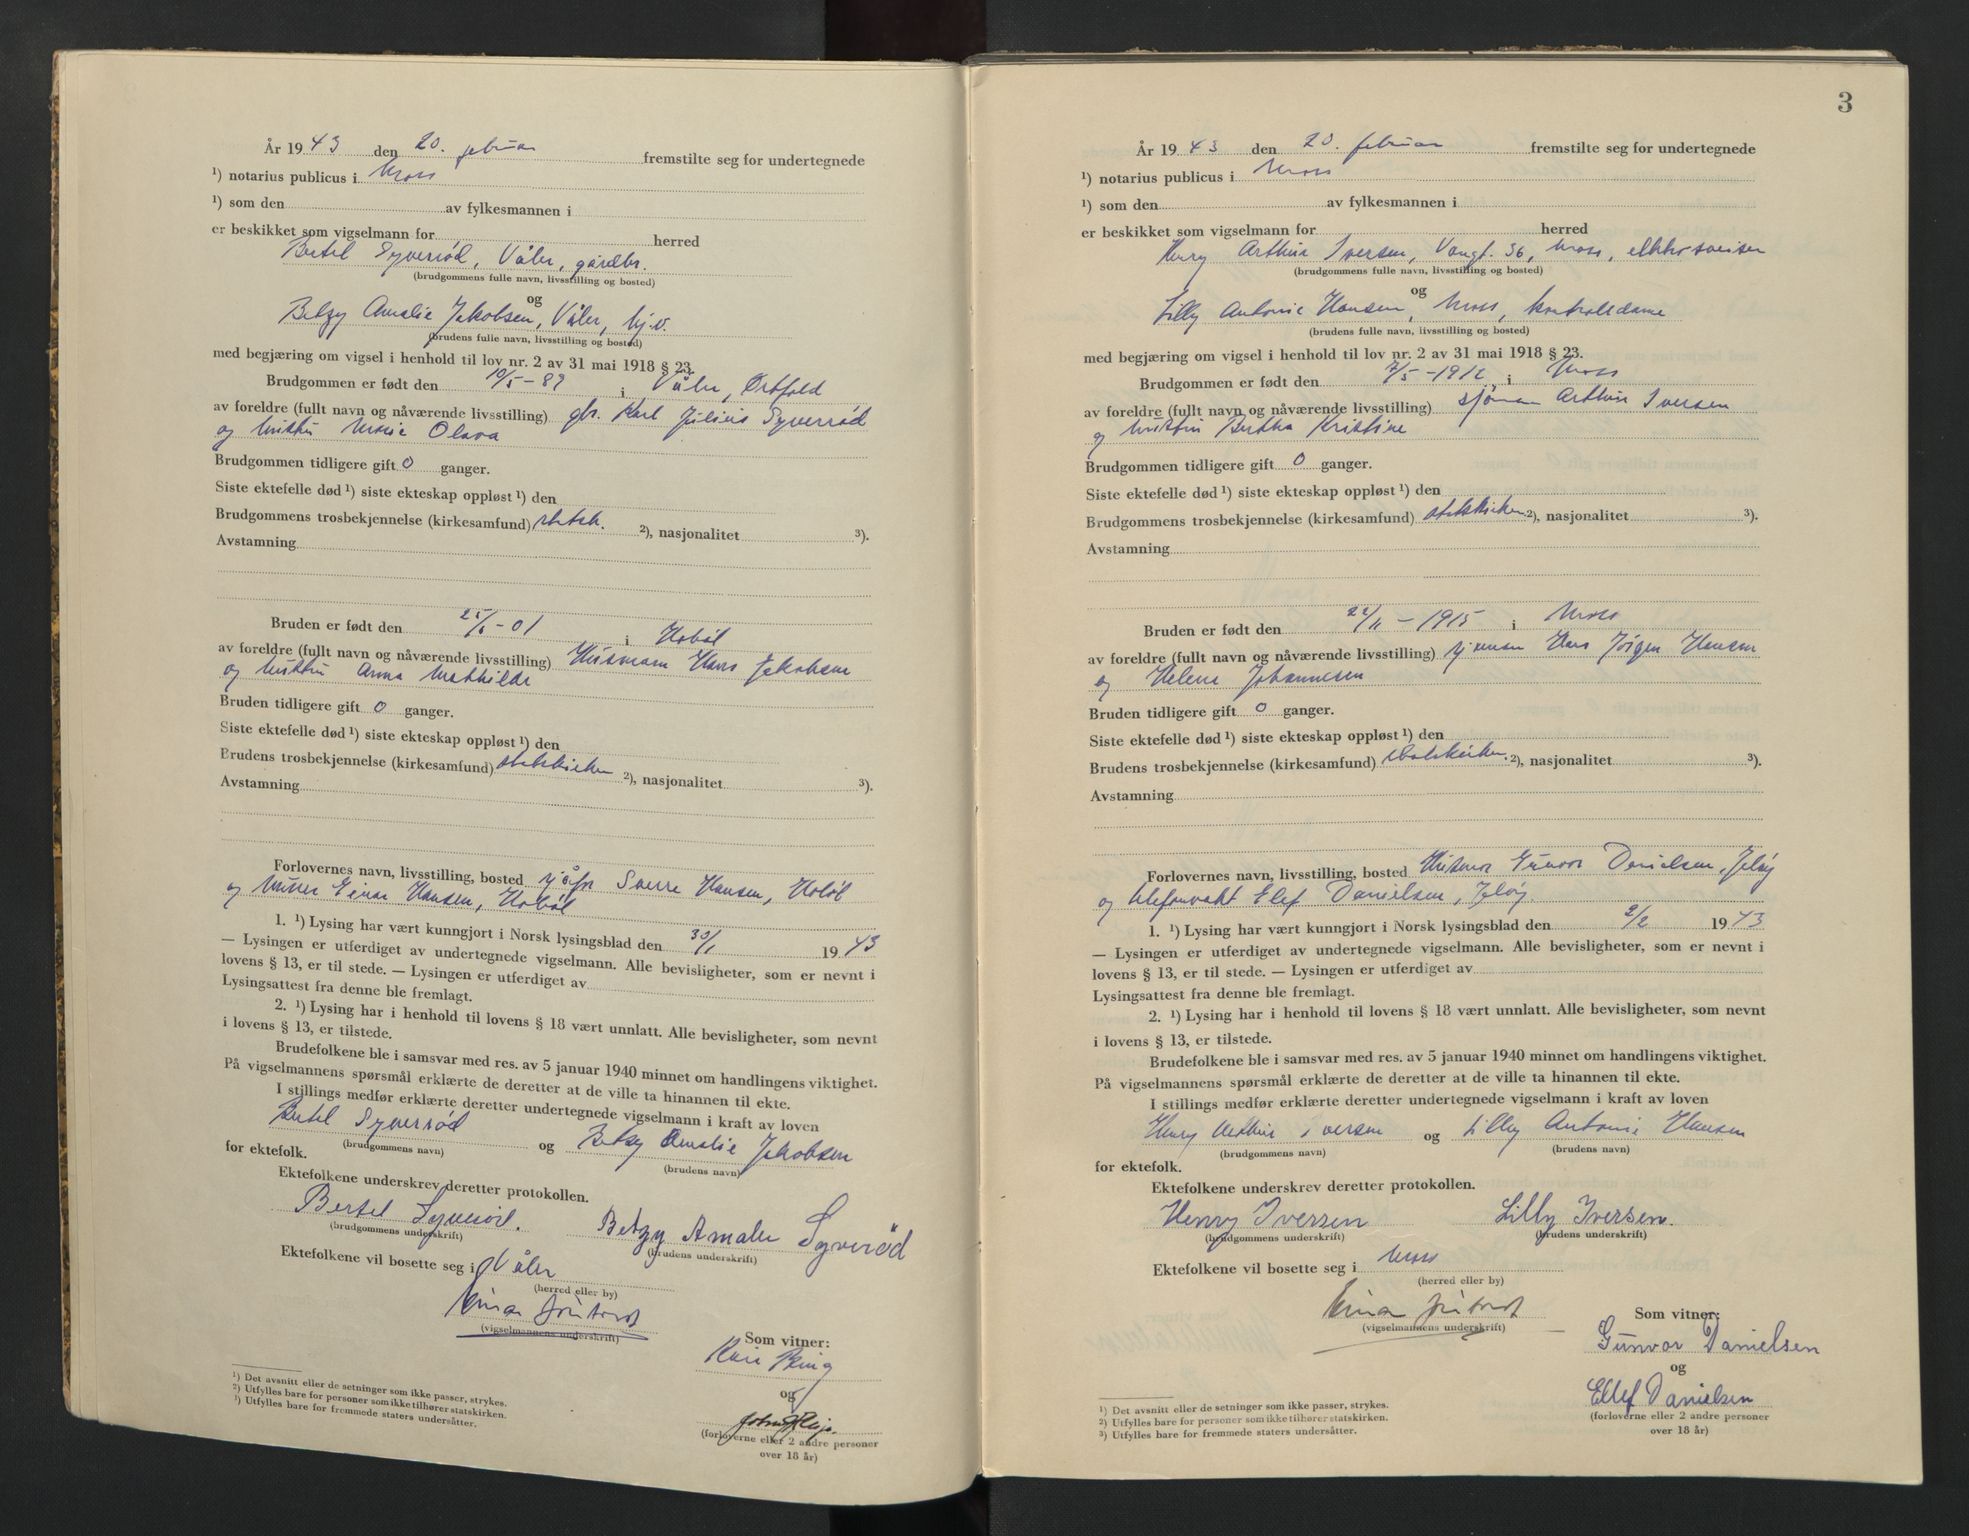 År 1943 den 20. februar fremstilte seg for undertegnede
¹) notarius publicus i Moss
¹) som den av fylkesmannen i
er beskikket som vigselmann for herred
Bertel Syverød, Våler, gårdbr.
(brudgommens fulle navn, livsstilling og bosted)
og
Betzy Amalie Jakobsen, Våler, hj.v.
(brudens fulle navn, livsstilling og bosted)
med begjæring om vigsel i henhold til lov nr. 2 av 31 mai 1918 § 23.
Brudgommen er født den 10/5-89 i Våler, Østfold
av foreldre (fullt navn og nåværende livsstilling) gbr. Karl Julius Syverød
og hustru Marie Olava
Brudgommen tidligere gift 0 ganger.
Siste ektefelle død ¹) siste ekteskap oppløst ¹) den
Brudgommens trosbekjennelse (kirkesamfund) statsk. ²), nasjonalitet ³).
Avstamning
Bruden er født den 25/6-01 i Hobøl
av foreldre (fullt navn og nåværende livsstilling) Husmann Hans Jakobsen
og hustru Anna Mathilde
Bruden tidligere gift 0 ganger.
Siste ektefelle død ¹) siste ekteskap oppløst ¹) den
Brudens trosbekjennelse (kirkesamfund) statskirken ²), nasjonalitet ³).
Avstamning
Forlovernes navn, livsstilling, bosted Sverre Hansen, Hobøl
og Einar Hansen, Hobøl
1. ¹) Lysing har vært kunngjort i Norsk lysingsblad den 30/1 1943
— Lysingen er utferdiget av undertegnede vigselmann. Alle bevisligheter, som er nevnt i
lovens § 13, er til stede. — Lysingen er utferdiget av
Lysingsattest fra denne ble fremlagt.
2. ¹) Lysing har i henhold til lovens § 18 vært unnlatt. Alle bevisligheter, som nevnt
i lovens § 13, er tilstede.
Brudefolkene ble i samsvar med res. av 5 januar 1940 minnet om handlingens viktighet.
På vigselmannens spørsmål erklærte de deretter at de ville ta hinannen til ekte.
I stillings medfør erklærte deretter undertegnede vigselmann i kraft av loven
Bertel Syverød og Betzy Amalie Jakobsen
(brudgommens navn) (brudens navn)
for ektefolk.
Ektefolkene underskrev deretter protokollen.
Bertel Syverød. Betzy Amalie Syverød
(brudgommens underskrift) (brudens underskrift)
Ektefolkene vil bosette seg i Våler
(herred eller by)
(vigselmannens underskrift)
Som vitner:
Kari
og
(forloverne eller 2 andre personer
over 18 år)
¹) Det avsnitt eller de setninger som ikke passer, strykes.
²) Utfylles bare for personer som ikke tilhører statskirken.
³) Utfylles bare for fremmede staters undersåtter.
3
År 1943 den 20. februar fremstilte seg for undertegnede
¹) notarius publicus i Moss
¹) som den av fylkesmannen i
er beskikket som vigselmann for herred
Henry Arthur Iversen, Vangt. 36, Moss, elektrosveiser
(brudgommens fulle navn, livsstilling og bosted)
og
Lilly Antonie Hansen, Moss, kontrolldame
(brudens fulle navn, livsstilling og bosted)
med begjæring om vigsel i henhold til lov nr. 2 av 31 mai 1918 § 23.
Brudgommen er født den 7/5-1912, i Moss
av foreldre (fullt navn og nåværende livsstilling) sjømann Arthur Iversen
og hustru Bertha Kristine
Brudgommen tidligere gift 0 ganger.
Siste ektefelle død ¹) siste ekteskap oppløst ¹) den
Brudgommens trosbekjennelse (kirkesamfund) statskirken ²), nasjonalitet ³).
Avstamning
Bruden er født den 22/11-1915 i Moss
av foreldre (fullt navn og nåværende livsstilling) sjømann Hans Jørgen Hansen
og Helene Johannesen
Bruden tidligere gift 0 ganger.
Siste ektefelle død ¹) siste ekteskap oppløst ¹) den
Brudens trosbekjennelse (kirkesamfund) statskirken. ²), nasjonalitet ³).
Avstamning
Forlovernes navn, livsstilling, bosted Husmor Gunvor Danielsen, Jeløy
og telefonvakt Elef Danielsen, Jeløy.
1. ¹) Lysing har vært kunngjort i Norsk lysingsblad den 2/2 1943
— Lysingen er utferdiget av undertegnede vigselmann. Alle bevisligheter, som er nevnt i
lovens § 13, er til stede. — Lysingen er utferdiget av
Lysingsattest fra denne ble fremlagt.
2. ¹) Lysing har i henhold til lovens § 18 vært unnlatt. Alle bevisligheter, som nevnt
i lovens § 13, er tilstede.
Brudefolkene ble i samsvar med res. av 5 januar 1940 minnet om handlingens viktighet.
På vigselmannens spørsmål erklærte de deretter at de ville ta hinannen til ekte.
I stillings medfør erklærte deretter undertegnede vigselmann i kraft av loven
Henry Arthur Iversen og Lilly Antonie Hansen
(brudgommens navn) (brudens navn)
for ektefolk.
Ektefolkene underskrev deretter protokollen.
Henry Iversen Lilly Iversen.
(brudgommens underskrift) (brudens underskrift)
Ektefolkene vil bosette seg i Moss
(herred eller by)
(vigselmannens underskrift)
Som vitner:
Gunvor Danielsen
og
Ellef Danielsen
(forloverne eller 2 andre personer
over 18 år)
¹) Det avsnitt eller de setninger som ikke passer, strykes.
²) Utfylles bare for personer som ikke tilhører statskirken.
³) Utfylles bare for fremmede staters undersåtter.